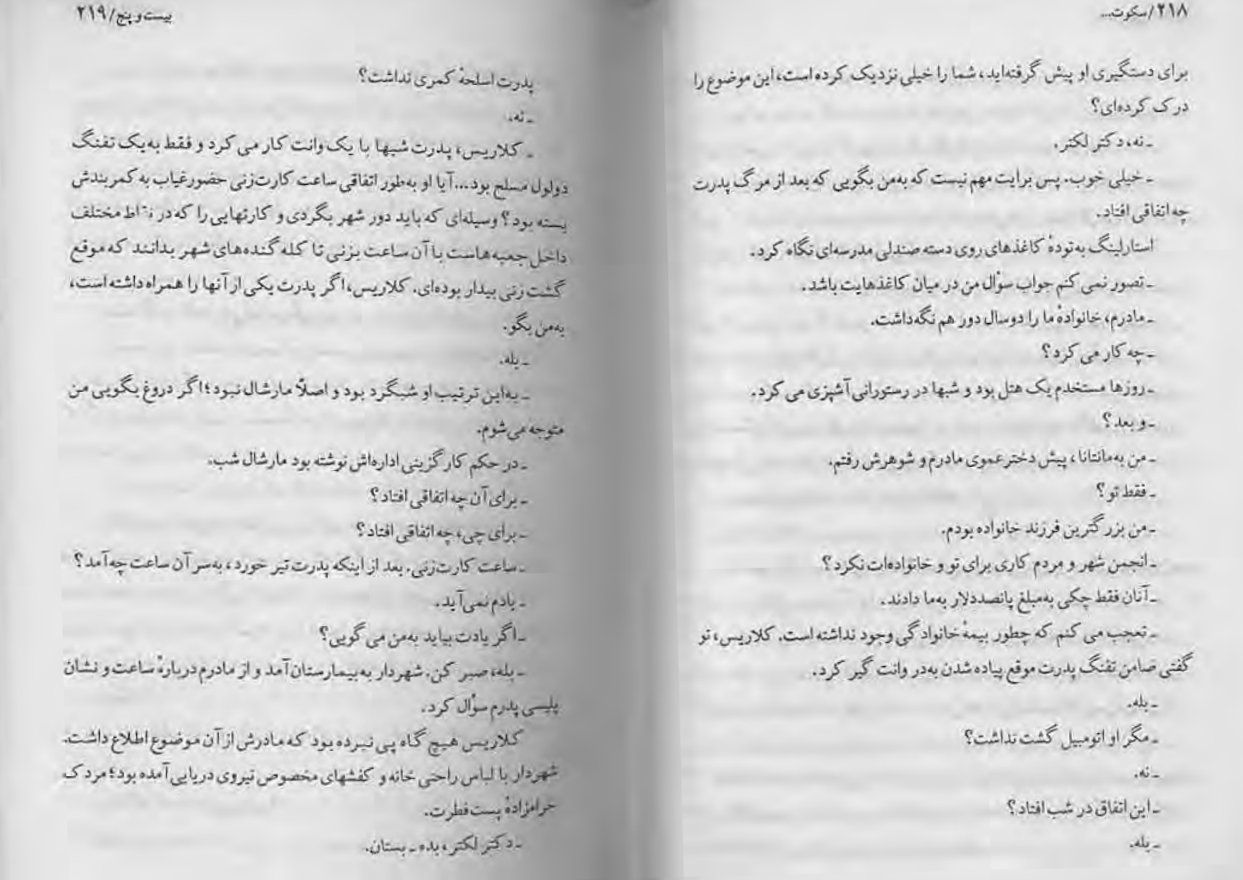 ۲۱۸/سکوت...
برای دستگیری او پیش گرفته‌اید، شما را خیلی نزدیک کرده است، این موضوع را
درک کرده‌ای؟
ـ نه، دکتر لکتر.
ـ خیلی خوب. پس برایت مهم نیست که به‌من بگویی که بعد از مرگ پدرت
چه اتفاقی افتاد.
استارلینگ به‌تودهٔ کاغذهای روی دسته صندلی مدرسه‌ای نگاه کرد.
ـ تصور نمی کنم جواب سؤال من در میان کاغذهایت باشد.
ـ مادرم، خانوادهٔ ما را دوسال دور هم نگه‌داشت.
ـ چه کار می کرد؟
ـ روزها مستخدم یک هتل بود و شبها در رستورانی آشپزی می کرد.
ـ و بعد؟
ـ من به‌مانتانا، پیش دخترعموی مادرم و شوهرش رفتم.
ـ فقط تو؟
ـ من بزرگترین فرزند خانواده بودم.
ـ انجمن شهر و مردم کاری برای تو و خانواده‌ات نکرد؟
ـ آنان فقط چکی به‌مبلغ پانصددلار به‌ما دادند.
ـ تعجب می کنم که چطور بیمهٔ خانوادگی وجود نداشته است. کلاریس، تو
گفتی ضامن تفنگ پدرت موقع پیاده شدن به‌در وانت گیر کرد.
ـ بله.
ـ مگر او اتومبیل گشت نداشت؟
ـ نه.
ـ این اتفاق در شب افتاد؟
ـ بله.
بیست و پنج/۲۱۹
پدرت اسلحهٔ کمری نداشت؟
ـ نه.
ـ کلاریس، پدرت شبها با یک وانت کار می کرد و فقط به‌یک تفنگ
دولول مسلح بود... آیا او به‌طور اتفاقی ساعت کارت‌زنی حضورغیاب به کمربندش
بسته بود؟ وسیله‌ای که باید دور شهر بگردی و کارتهایی را که در نقاط مختلف
داخل جعبه‌هاست با آن ساعت بزنی تا کله گنده‌های شهر بدانند که موقع
گشت زنی بیدار بوده‌ای. کلاریس، اگر پدرت یکی از آنها را همراه داشته است،
به‌من بگو.
ـ بله.
ـ به‌این ترتیب او شبگرد بود و اصلاً مارشال نبود؛ اگر دروغ بگویی من
متوجه می‌شوم.
ـ در حکم کارگزینی اداره‌اش نوشته بود مارشال شب.
ـ برای آن چه اتفاقی افتاد؟
ـ برای چی، چه اتفاقی افتاد؟
ـ ساعت کارت‌زنی. بعد از اینکه پدرت تیر خورد، به‌سر آن ساعت چه آمد؟
ـ یادم نمی‌آید.
ـ اگر یادت بیاید به‌من می گویی؟
ـ بله، صبر کن. شهردار به‌بیمارستان آمد و از مادرم دربارهٔ ساعت و نشان
پلیسی پدرم سؤال کرد.
کلاریس هیچ گاه پی نبرده بود که مادرش از آن موضوع اطلاع داشت.
شهردار با لباس راحتی خانه و کفشهای مخصوص نیروی دریایی آمده بود؛ مردک
حرامزادهٔ پست‌فطرت.
ـ دکتر لکتر، بده ـ بستان.